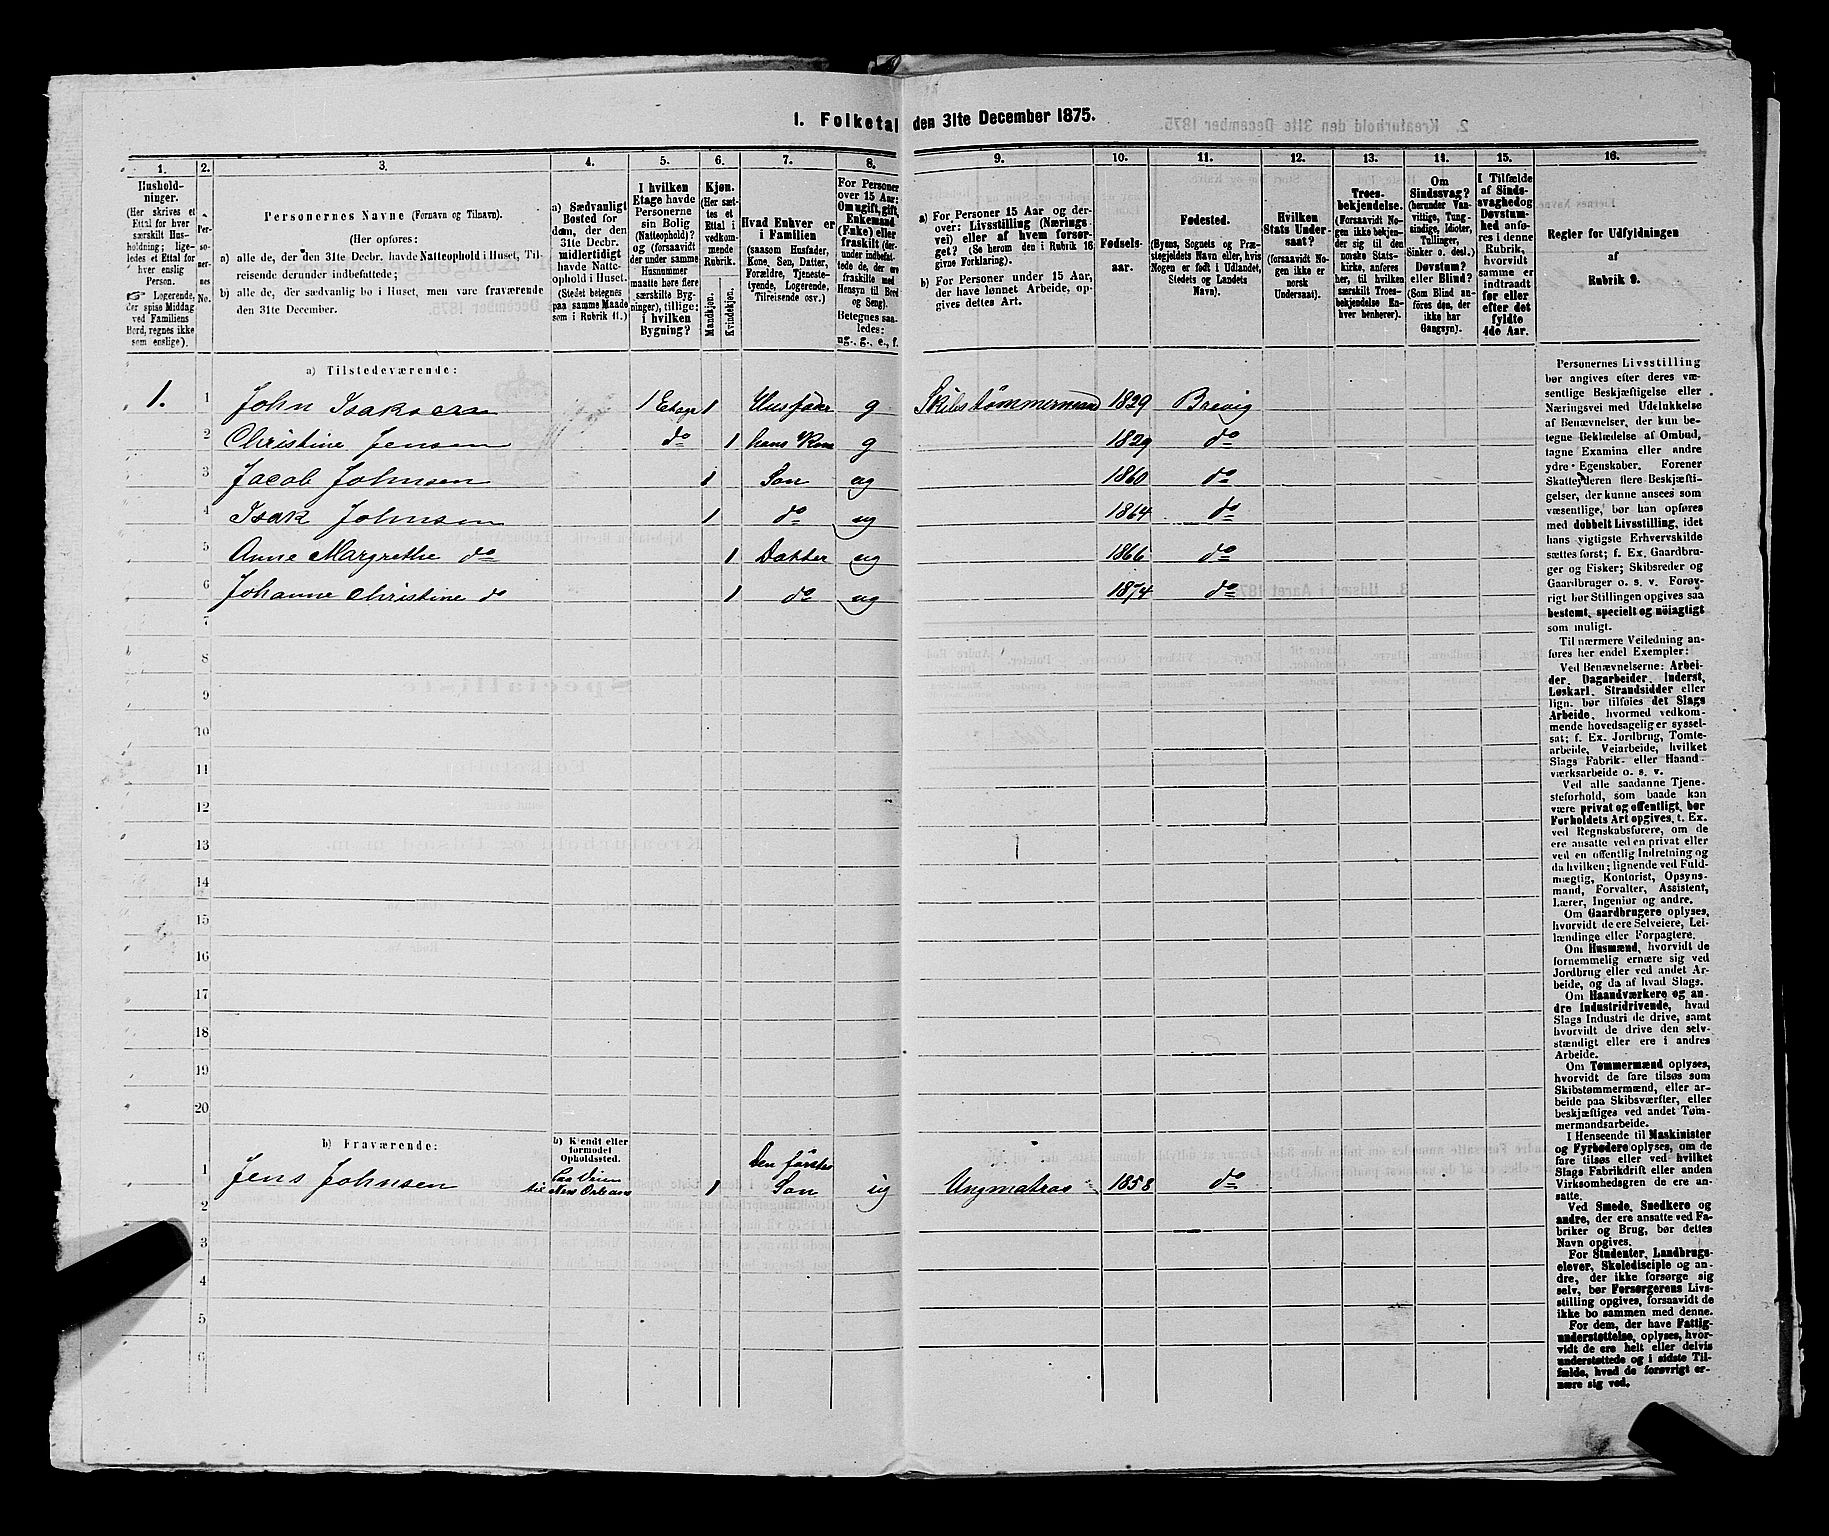 1. Folketal den 31te December 1875.
1. 2. 3. 4. 5. 6. 7. 8. 9. 10. 11. 12. 13. 14. 15. 16.
Hushold-
ninger.
(Her skrives et
Ettal for hver
særskilt Hus-
holdning; lige-
ledes et Ettal for
hver enslig
Person.
Logerende,
der spise Middag
ved Familiens
Bord, regnes ikke
som enslige).
Per-
so-
ner-
nes
No.
Personernes Navne (Fornavn og Tilnavn).
(Her opføres:
a) alle de, der den 31te Decbr. havde Natteophold i Huset, Til-
reisende derunder indbefattede;
b) alle de, der sædvanlig bo i Huset, men vare fraværende
den 31te December.
a) Sædvanligt
Bosted for
dem, der den
31te Decbr.
midlertidigt
havde Natte-
ophold i Huset.
(Stedet betegnes
paa samme Maade
som i Rubrik 11.)
I hvilken
Etage havde
Personerne
sin Bolig
(Natteophold)?
og (forsaavidt
der under samme
Husnummer
maatte høre flere
særskilte Byg-
ninger), tillige:
i hvilken
Bygning?
Kjøn.
(Her sæt-
tes et
Ettal i
vedkom-
mende
Rubrik.
Mandkjøn.
Kvindekjøn.
Hvad Enhver er
i Familien
(saasom Husfader,
Kone, Søn, Datter,
Forældre, Tjeneste-
tyende, Logerende,
Tilreisende osv.)
For Personer
over 15 Aar:
Om ugift, gift,
Enkemand
(Enke) eller
fraskilt (der-
under indbefat-
tede de, der ere
fraskilte med
Hensyn til Bord
og Seng).
Betegnes saa-
ledes:
ug., g., e., f.
a) For Personer 15 Aar og der-
over: Livsstilling (Nærings-
vei) eller af hvem forsør-
get? (Se herom den i Rubrik 16
givne Forklaring).
b) For Personer under 15 Aar,
der have lønnet Arbeide, op-
gives dettes Art.
Fødsels-
aar.
Fødested.
(Byens, Sognets og Præ-
stegjeldets Navn eller, hvis
Nogen er født i Udlandet,
Stedets og Landets
Navn).
Hvilken
Stats Under-
saat?
(forsaavidt No-
gen ikke er
norsk
Undersaat).
Troes-
bekjendelse.
(Forsaavidt No-
gen ikke bekjen-
der sig til den
norske Stats-
kirke, anføres
her, til hvilken
særskilt Troes-
bekjendelse En-
hver henhører).
Om
Sindssvag?
(herunder Van-
vittige, Tung-
sindige, Idioter,
Tullinger,
Sinker o. desl.)
Døvstum?
eller Blind?
(Som Blind an-
føres den, der
ikke har
Gangsyn).
I Tilfælde
af Sinds-
svaghed og
Døvstum-
hed anfø-
res i denne
Rubrik,
hvorvidt
samme er
indtraadt
før eller
efter det
fyldte
4de Aar.
Regler for Udfyldningen
af
Rubrik 9.
a) Tilstedeværende:
1. 1 John Isaksen 1 Etage 1 Husfader g Skibstømmermand 1829 Brevig
2 Christine Jensen do 1 hans Kone g 1829 do
3 Jacob Johnsen 1 Søn ug 1860 do
4 Isak Johnsen 1 do ug 1864 do
5 Anne Margrethe do 1 Datter ug 1866 do
6 Johanne Christine do 1 do ug 1874 do
7
8
9
10
11
12
13
14
15
16
17
18
19
20
b) Fraværende:
b) Kjendt eller
formodet
Opholdssted.
1 Jens Johnsen til New Orleans 1 Den første Søn ug Ungmatros 1858 do
2
3
4
5
6
Personernes Livsstilling
bør angives efter deres væ-
sentlige Beskjæftigelse eller
Næringsvei med Udelukkelse
af Benævnelser, der kun be-
tegne Beklædelse af Ombud,
tagne Examina eller andre
ydre Egenskaber. Forener
Skatteyderen flere Beskjæfti-
gelser, der kunne ansees som
væsentlige, bør han opføres
med dobbelt Livsstilling, idet
hans vigtigste Erhvervskilde
sættes først; f. Ex. Gaardbru-
ger og Fisker; Skibsreder og
Gaardbruger o. s. v. Forøv-
rigt bør Stillingen opgives saa
bestemt, specielt og nöiagtigt
som muligt.
Til nærmere Veiledning an-
føres her endel Exempler:
Ved Benævnelserne: Arbei-
der, Dagarbeider, Inderst,
Løskarl, Strandsidder eller
lign. bør tilføies det Slags
Arbeide, hvormed vedkom-
mende hovedsagelig er syssel-
sat; f. Ex. Jordbrug, Tomte-
arbeide, Veiarbeide, hvilket
Slags Fabrik- eller Haand-
værksarbeide o. s. v.
Ved alle saadanne Tjene-
steforhold, som baade kan
være privat og offentligt, bør
Forholdets Art opgives, t. Ex.
ved Regnskabsførere, om de
ere ansatte ved en privat eller
ved en offentlig Indretning og
da hvilken; lignende ved Fuld-
mægtig, Kontorist, Opsyns-
mand, Forvalter, Assistent,
Lærer, Ingeniør og andre.
Om Gaardbrugere oplyses,
hvorvidt de ere Selveiere, Lei-
lændinge eller Forpagtere.
Om Husmænd, hvorvidt de
fornemmelig ernære sig ved
Jordbrug eller ved andet Ar-
beide, og da af hvad Slags.
Om Haandværkere og an-
dre Industridrivende, hvad
Slags Industri de drive, samt
hvorvidt de drive den selv-
stændigt eller ere i andres
Arbeide.
Om Tømmermænd oplyses,
hvorvidt de fare tilsøs som
Skibstømmermænd, eller ar-
beide paa Skibsværfter, eller
beskjæftiges ved andet Tøm-
mermandsarbeide.
I Henseende til Maskinister
og Fyrbødere oplyses, om de
fare tilsøs eller ved hvilket
Slags Fabrikdrift eller anden
Virksomhedsgren de ere an-
satte.
Ved Smede, Snedkere og
andre, der ere ansatte ved Fa-
briker og Brug, bør dettes
Navn opgives.
For Studenter, Landbrugs-
elever, Skoledisciple og an-
dre, der ikke forsørge sig
selv, bør Forsørgerens Livs-
stilling opgives, forsaavidt de
ikke bo sammen med denne.
For dem, der have Fattig-
understøttelse, oplyses, hvor-
vidt de ere helt eller delvis
understøttede og i sidste Til-
fælde, hvad de forøvrigt er-
nære sig ved.